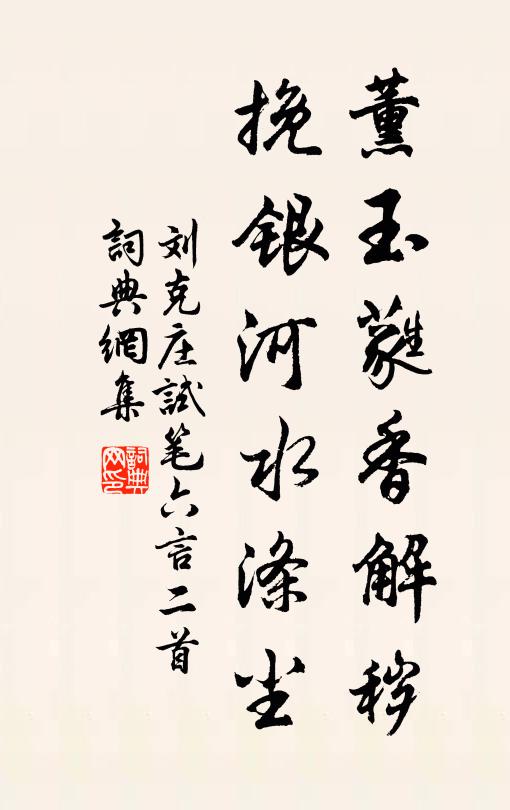 薰玉蕤香解秽
挽银河水涤尘
刘克庄試笔六言二首
詞典網集
詞典网印